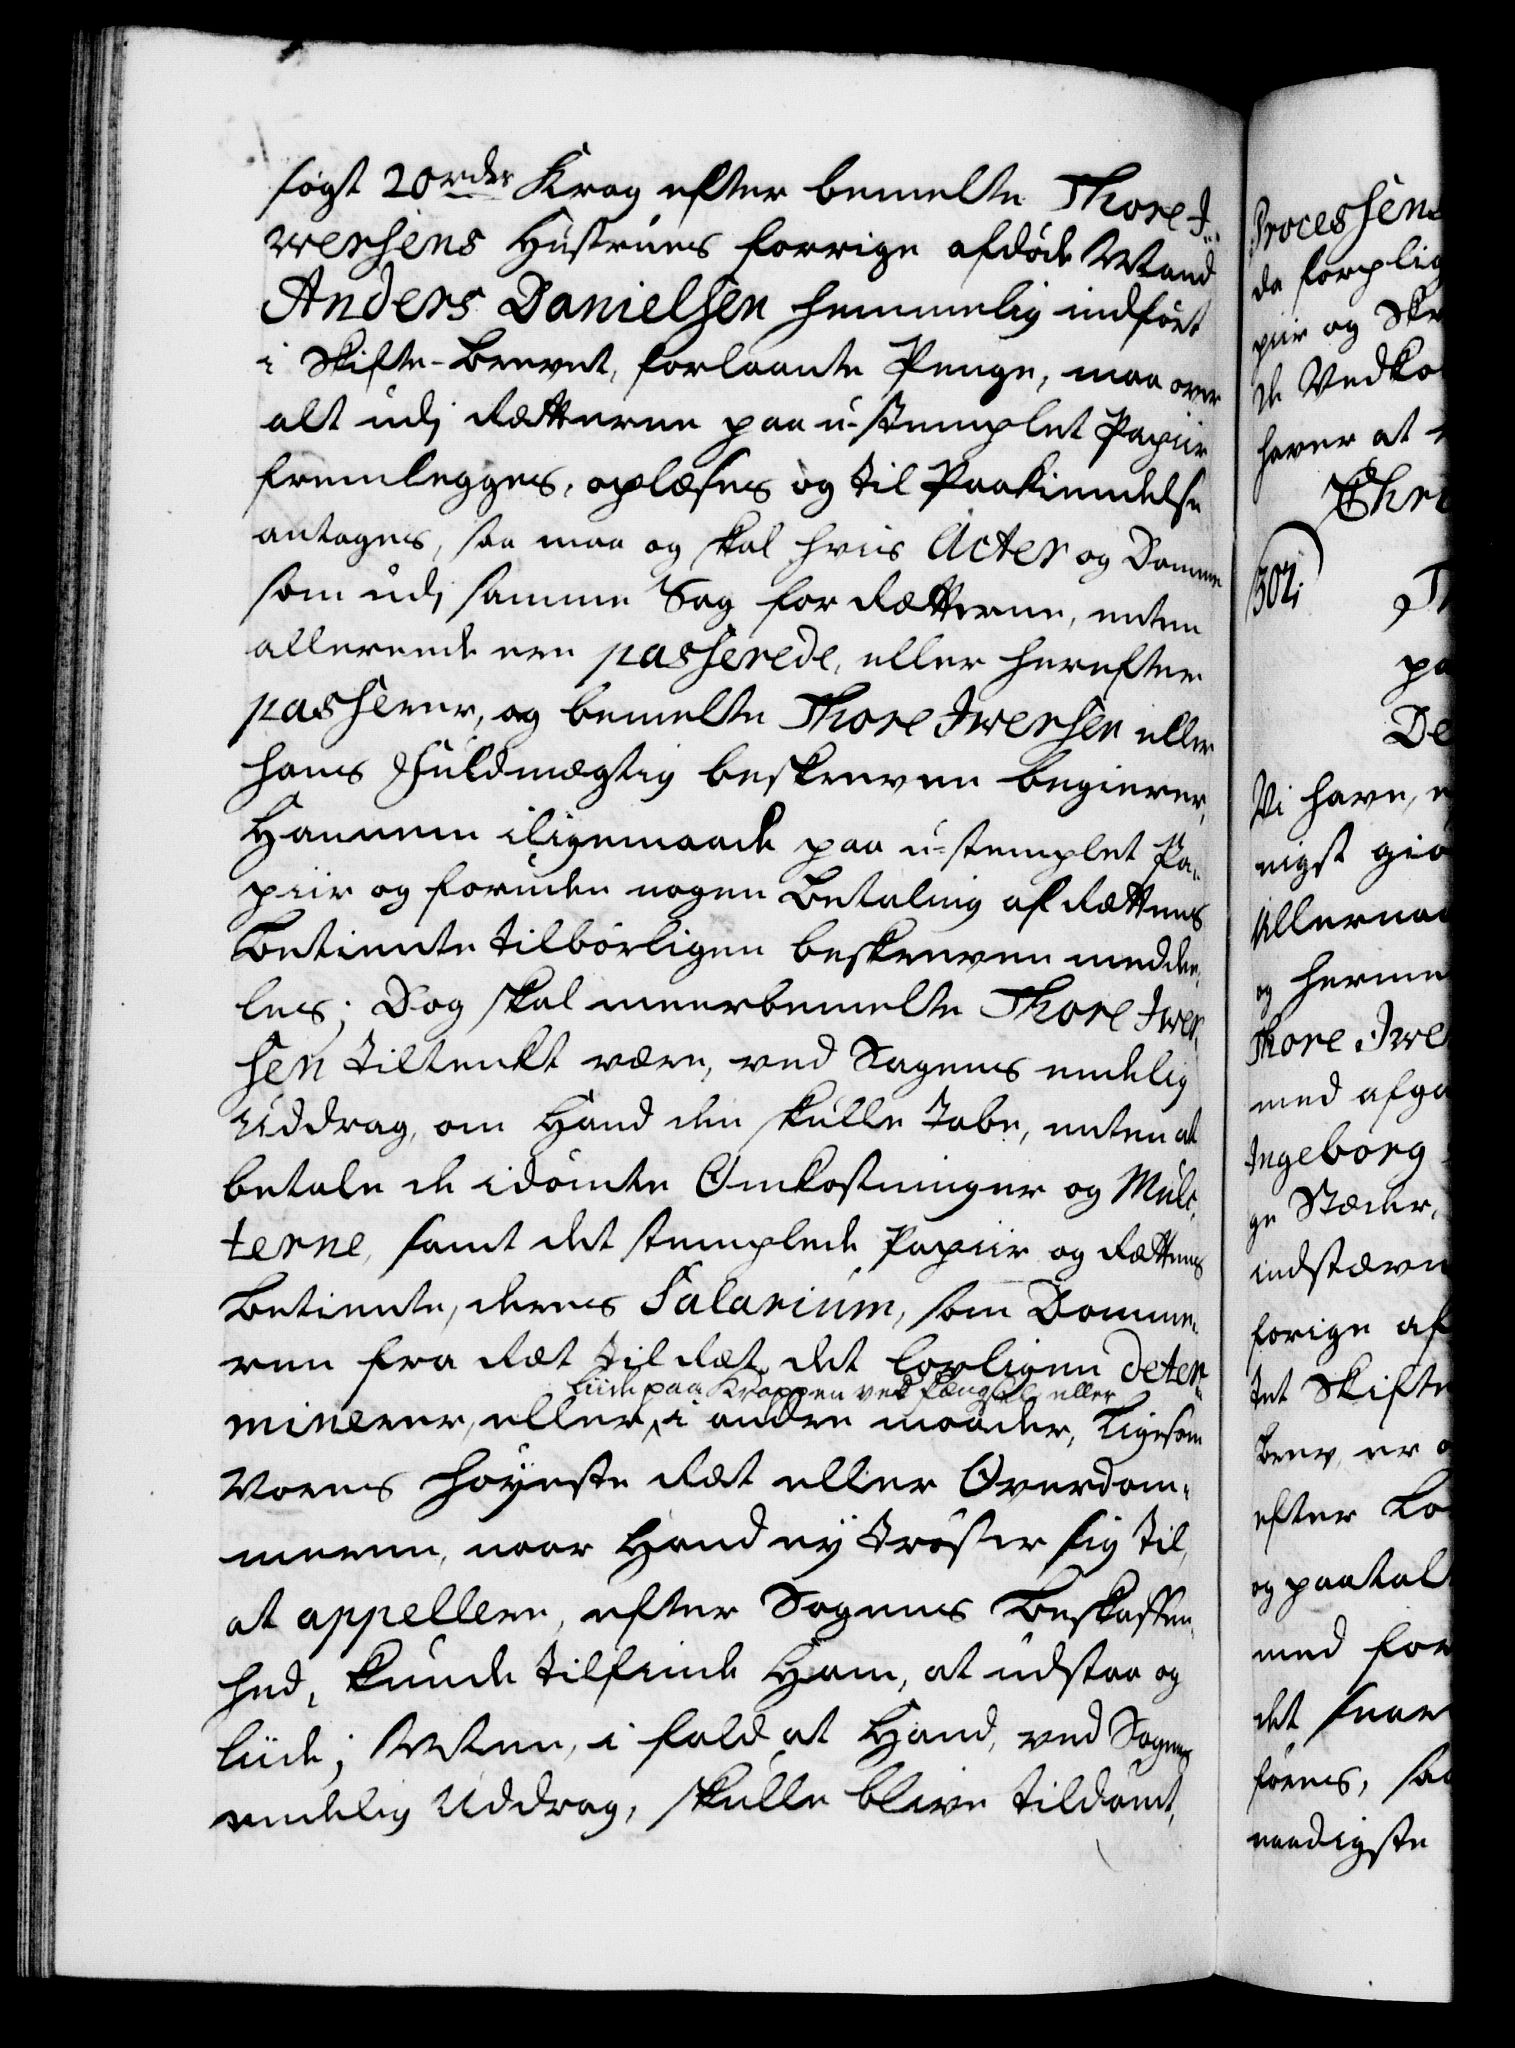 søgt 20 rdr Krav efter bemelte Thore I-
wersens Hustrues forrige afdøde Mand
Anders Danielsen hemmelig indført
i Skifte-Brevet, forlaante Penge, maa over
alt udj Rætterne paa u-stemplet Papiir
fremlegges, oplæses og til Paakiendelse
antages, saa maa og skal hvis Acter og Domme
som udj samme Sag for Rætterne, enten
allereede ere passerede, eller herefter
passerer, og bemelte Thore Iwersen eller
hans Fuldmægtig beskreven begierer,
Hannem iligemaade paa u-stemplet Pa-
piir og foruden nogen Betaling af Rættens
Betiente tilbørligen beskreven meddee-
les; Dog skal meerbemelte Thore Iwer-
sen tiltenkt være, ved Sagens endelig
Uddrag, om Hand den skulle tabe, enten at
betale de idømte Omkostninger og Mulc-
terne, samt det stemplede Papiir og Rættens
Betiente, deres Salarium, som Domme-
ren fra Ræt til Ræt det lovligen deter-
liide paa Kroppen ved Fængsel, eller
minerer, eller i andre maader, ligesom
Vores Høyeste Ræt eller Overdom-
meren, naar Hand ey trøster sig til,
at appellere, efter Sagens Beskaffen-
hed, kunde tilfinde Ham, at udstaa og
liide; Men, i fald at Hand, ved Sagens
endelig Uddrag, skulle blive tildømt,
Processens
da forplig
piir og Skr
de Vedko
haver at
Chri
302.
Th
pa
De
Vi have,
nigst giø
Allernaa
og herme
Thore Iwe
med afga
Ingeborg
ge Stæder,
indstævn
forige af
tet Skifte
brev, er
efter Lo
og paatal
med for
det svar
føres, saa
naadigste